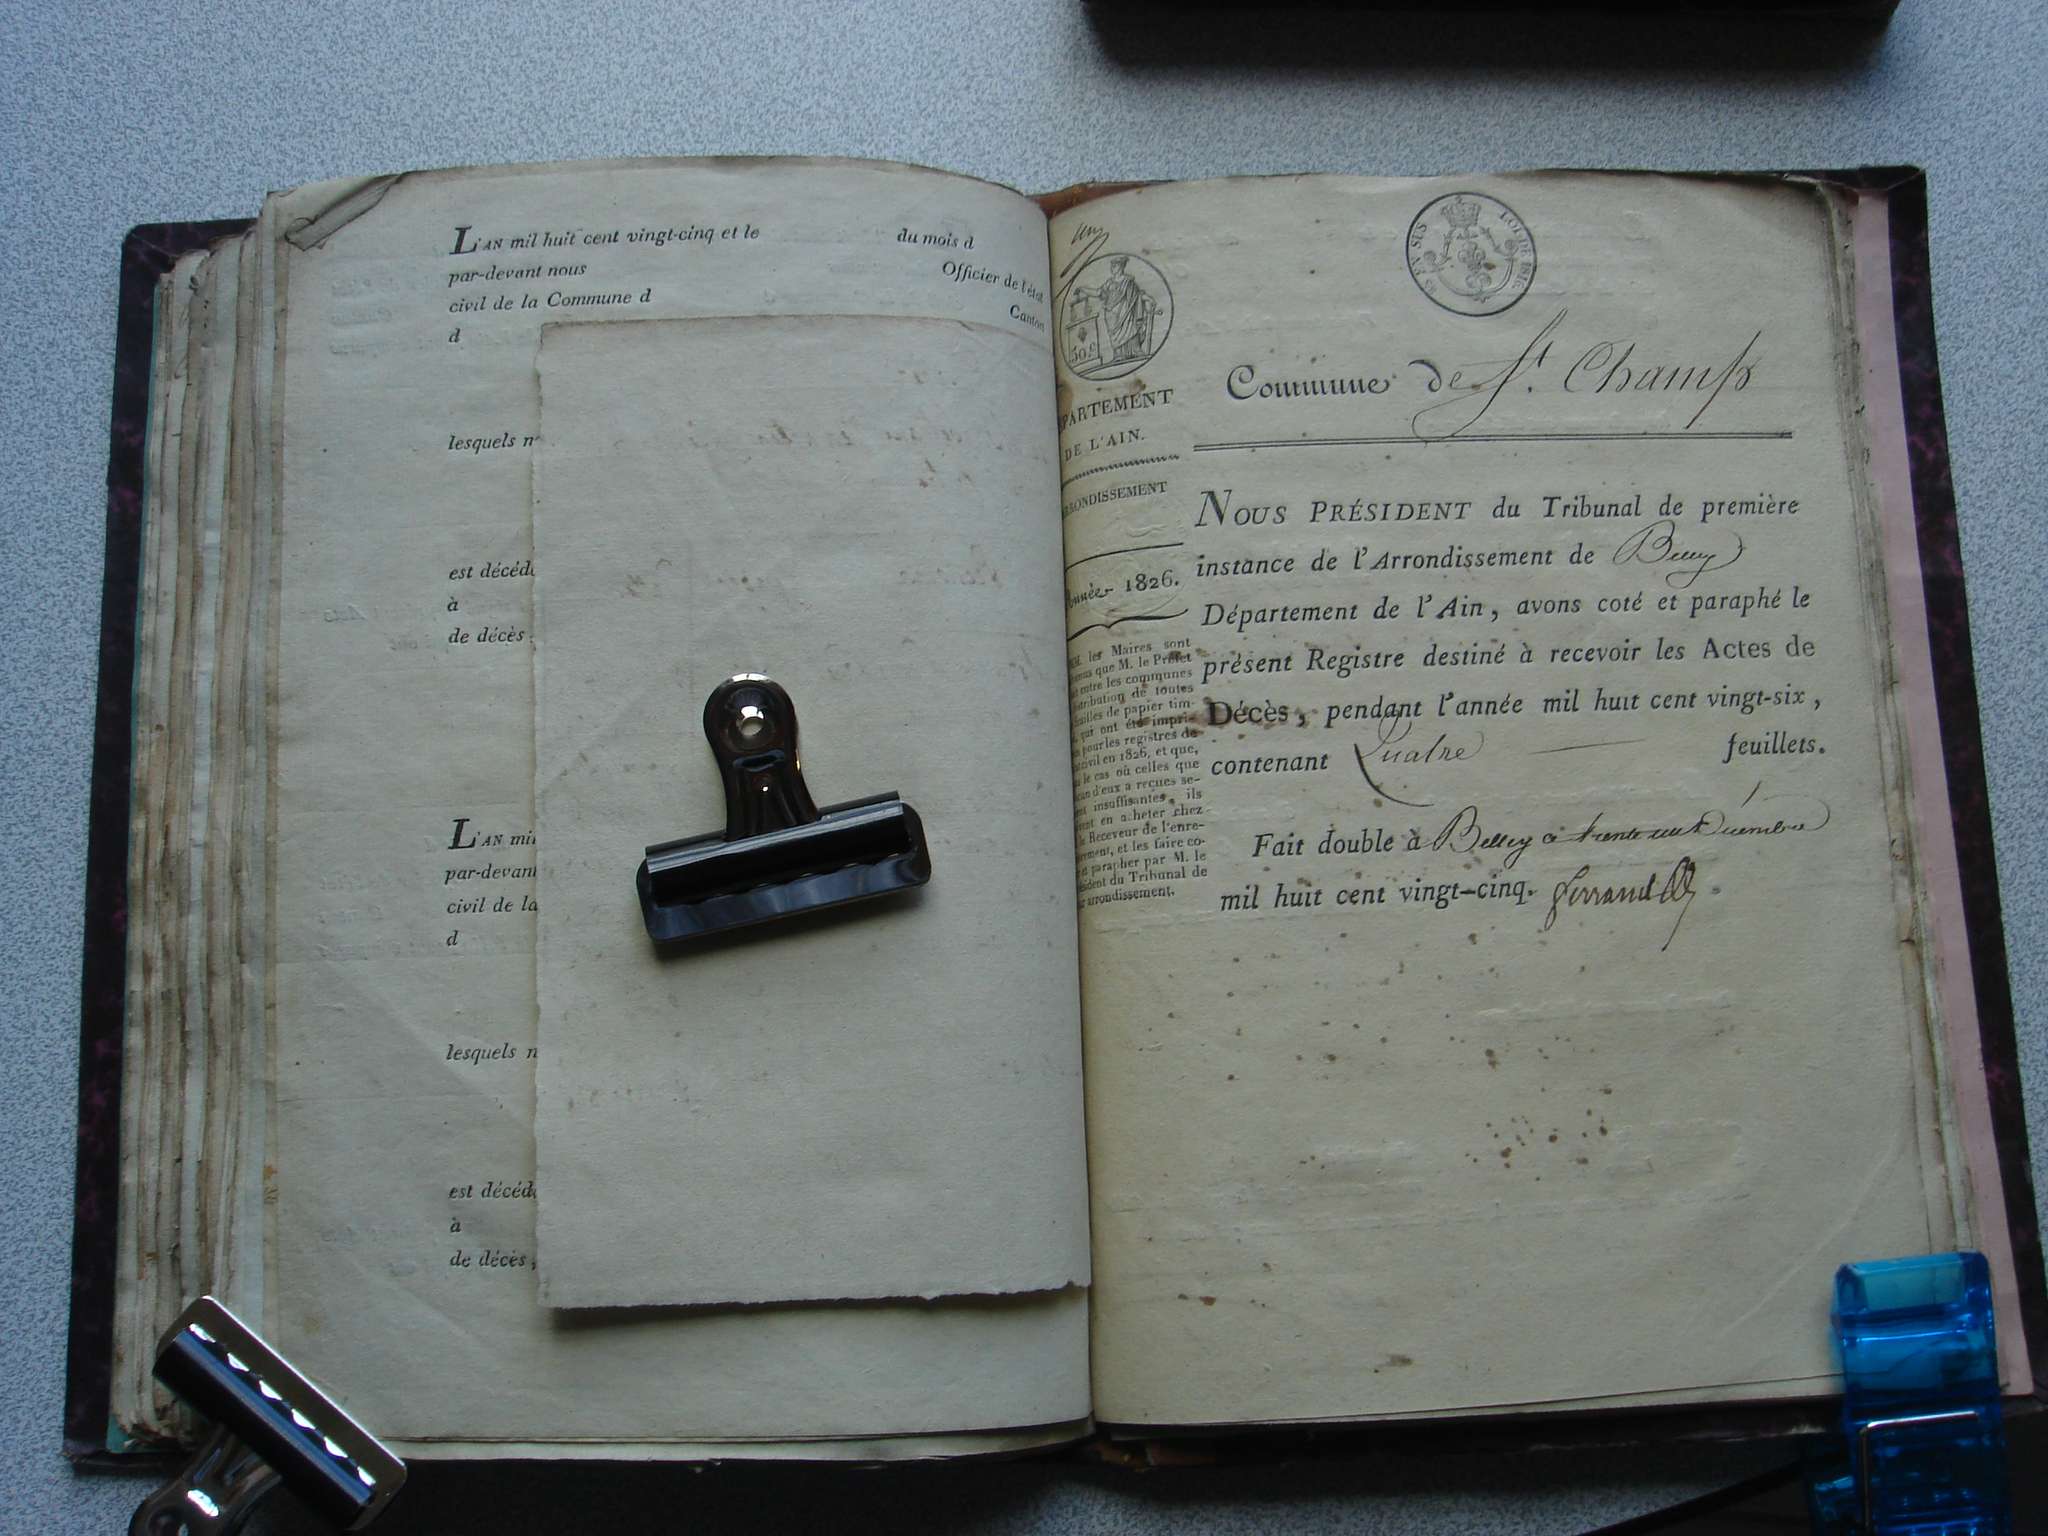 L'AN mil huit cent vingt-cinq et le du mois d
par-devant nous Officier de l'état
civil de la Commune d Canton
d
lesquels n
est décéd
à
de décès
L'AN mil
par-devant
civil de la
d
lesquels n
est décéd
à
de décès,
50 c
DÉPARTEMENT
DE L'AIN.
ARRONDISSEMENT
Année 1826.
MM. les Maires sont
que M. le Préfet
entre les communes
distribution de toutes
feuilles de papier tim-
qui ont été impri-
pour les registres de
civil en 1826, et que,
le cas où celles que
d'eux a reçues se-
insuffisantes, ils
en acheter chez
le Receveur de l'enre-
et les faire co-
et parapher par M. le
Président du Tribunal de
arrondissement.
EN SUS
LOI DE 1816.
Commune de St. Champ
NOUS PRÉSIDENT du Tribunal de première
instance de l'Arrondissement de Belley
Département de l'Ain, avons coté et paraphé le
présent Registre destiné à recevoir les Actes de
Décès, pendant l'année mil huit cent vingt-six,
contenant Quatre feuillets.
Fait double à Belley le trente un Décembre
mil huit cent vingt-cinq. Ferrand